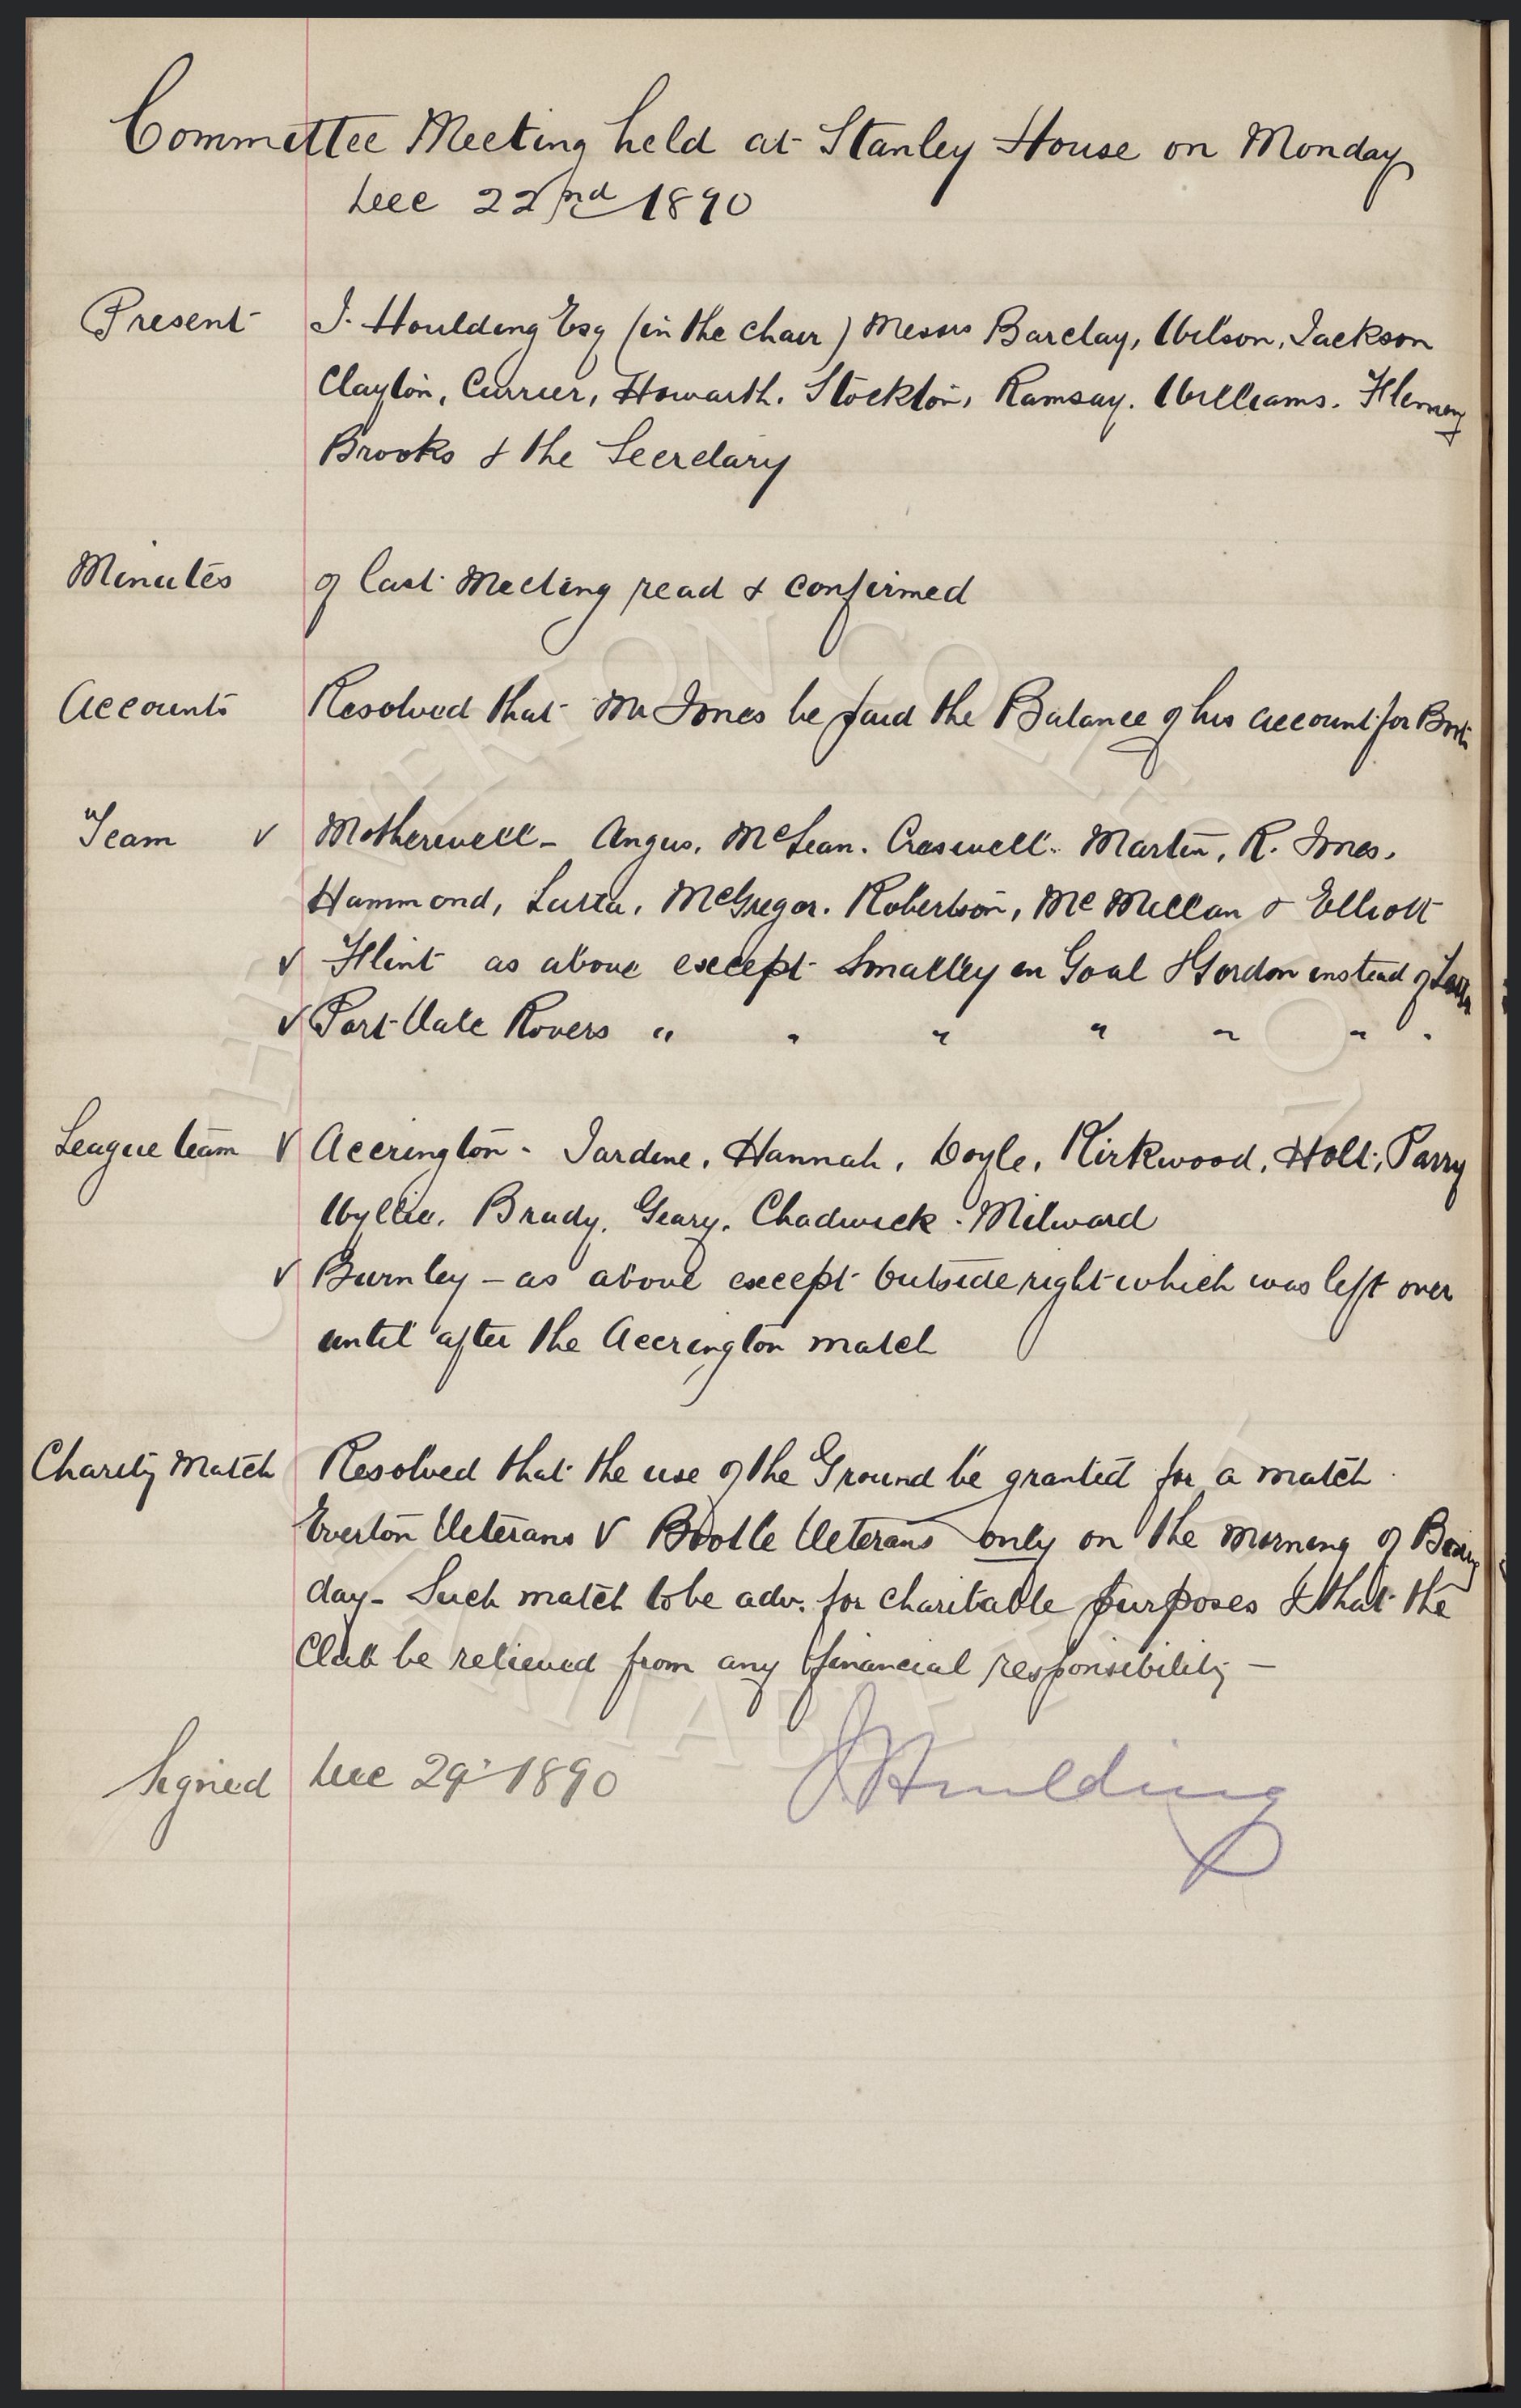 Committee Meeting held at Stanley House on Monday
Dec 22nd 1890
Present J. Houlding Esq (in the chair) Messrs Barclay, Wilson, Jackson
Clayton, Currier, Howarth. Stockton, Ramsay. Williams. Fleming
Brooks & the Secretary
Minutes of last Meeting read & confirmed
Accounts Resolved that Mr Jones be paid the Balance of his account for Boots
Team v Motherwell - Angus, McLean. Creswell. Martin, R. Jones,
Hammond, Lurta, McGregor. Robertson, McMillan & Elliott
v Flint as above except Smalley in Goal & Gordon instead of Lurta
v Port Vale Rovers " " " " " " "
League team v Accrington - Jardine, Hannah, Doyle, Kirkwood, Holt, Parry
Wyllie, Brady, Geary, Chadwick. Milward
v Burnley - as above except outside right which was left over
until after the Accrington match
Charity Match Resolved that the use of the Ground be granted for a match
Everton Veterans V Bootle Veterans only on the morning of Boxing
day - Such match to be adv. for charitable purposes & that the
Club be relieved from any financial responsibility -
Signed Dec 29 1890 J Houlding